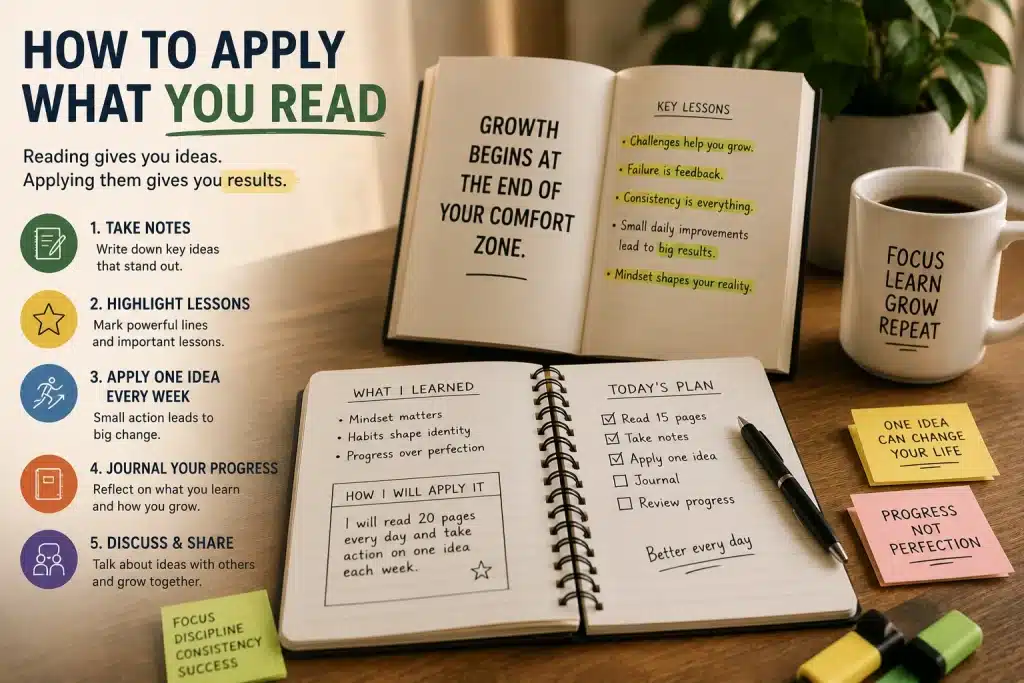 HOW TO APPLY
WHAT YOU READ
Reading gives you ideas.
Applying them gives you results.
1. TAKE NOTES
Write down key ideas
that stand out.
2. HIGHLIGHT LESSONS
Mark powerful lines
and important lessons.
3. APPLY ONE IDEA
EVERY WEEK
Small action leads to
big change.
4. JOURNAL YOUR PROGRESS
Reflect on what you learn
and how you grow.
5. DISCUSS & SHARE
Talk about ideas with others
and grow together.
GROWTH
BEGINS AT
THE END OF
YOUR COMFORT
ZONE.
KEY LESSONS
• Challenges help you grow.
• Failure is feedback.
• Consistency is everything.
• Small daily improvements
lead to big results.
• Mindset shapes your reality.
FOCUS
LEARN
GROW
REPEAT
WHAT I LEARNED
• Mindset matters
• Habits shape identity
• Progress over perfection
HOW I WILL APPLY IT
I will read 20 pages
every day and take
action on one idea
each week.
TODAY'S PLAN
Read 15 pages
Take notes
Apply one idea
Journal
Review progress
Better every day
ONE IDEA
CAN CHANGE
YOUR LIFE
PROGRESS
NOT
PERFECTION
FOCUS
DISCIPLINE
CONSISTENCY
SUCCESS